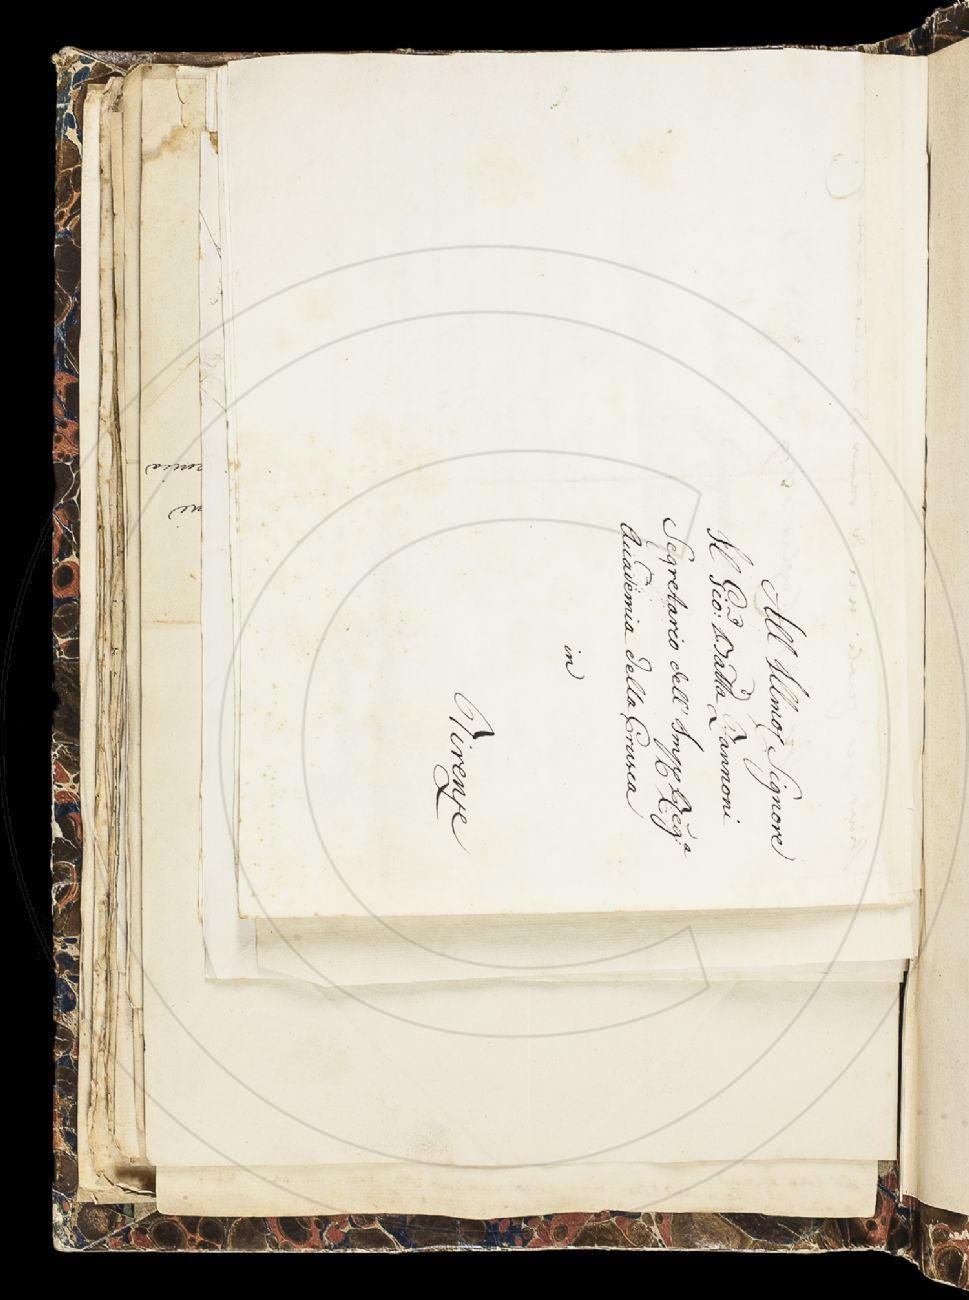 All' Illmo Signore
Il Sig. Gio: Batta Zannoni
Segretario dell' Imp.e Reg.a
Accademia della Crusca
in
Firenze